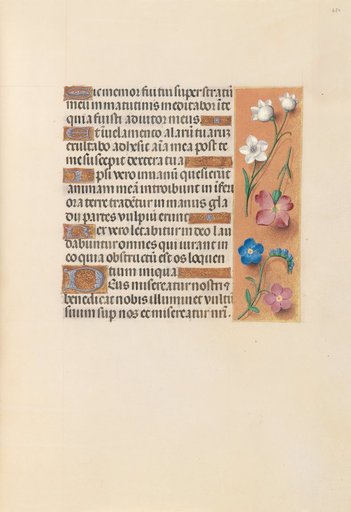 Sic memor fui tui super stratū
meū in matutinis meditabor ī te
quia fuisti adiutor meus
Et ī uelamento alarū tuarū
exultabo adhesit aīa mea post te
me suscepit dextera tua
Ipsi vero in uanū quesierūt
animam meā introibunt in īferi
ora terre tradētur in manus gla
dii partes vulpiū erunt
Rex vero letabitur in deo lau
dabūtur omnes qui iurant in
eo quia obstructū est os loquen
tium iniqua
Deus misereatur nostri ⁊
benedicat nobis illuminet vultū
suum sup nos et misereatur nr̄i.